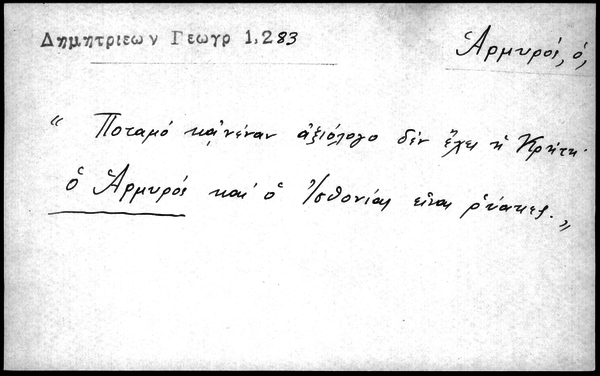 Δημητριεων Γεωγρ 1,283
Ἁρμυρός, ὁ,
“ Ποταμό κᾀνέναν ἀξιόλογο δέν ἔχει ἡ Κρήτη·
ὁ Ἁρμυρός καί ὁ εἶναι ῥύακες. „